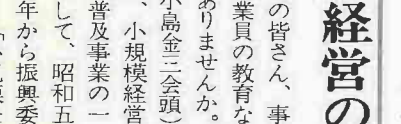 経営の
の皆さん、事
業員の教育な
ありませんか。
小島金三会頭）
、小規模経営
普及事業の一
して、昭和五
年から振興委